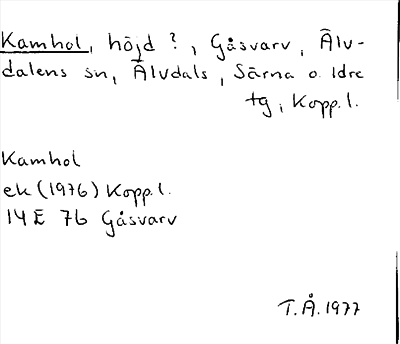 Kamhol, höjd ?, Gåsvarv, Älv-
dalens sn, Älvdals, Särna o. Idre
tg, Kopp. l.
Kamhol
ek (1976) Kopp. l.
14 E 7b Gåsvarv
T.Å. 1977